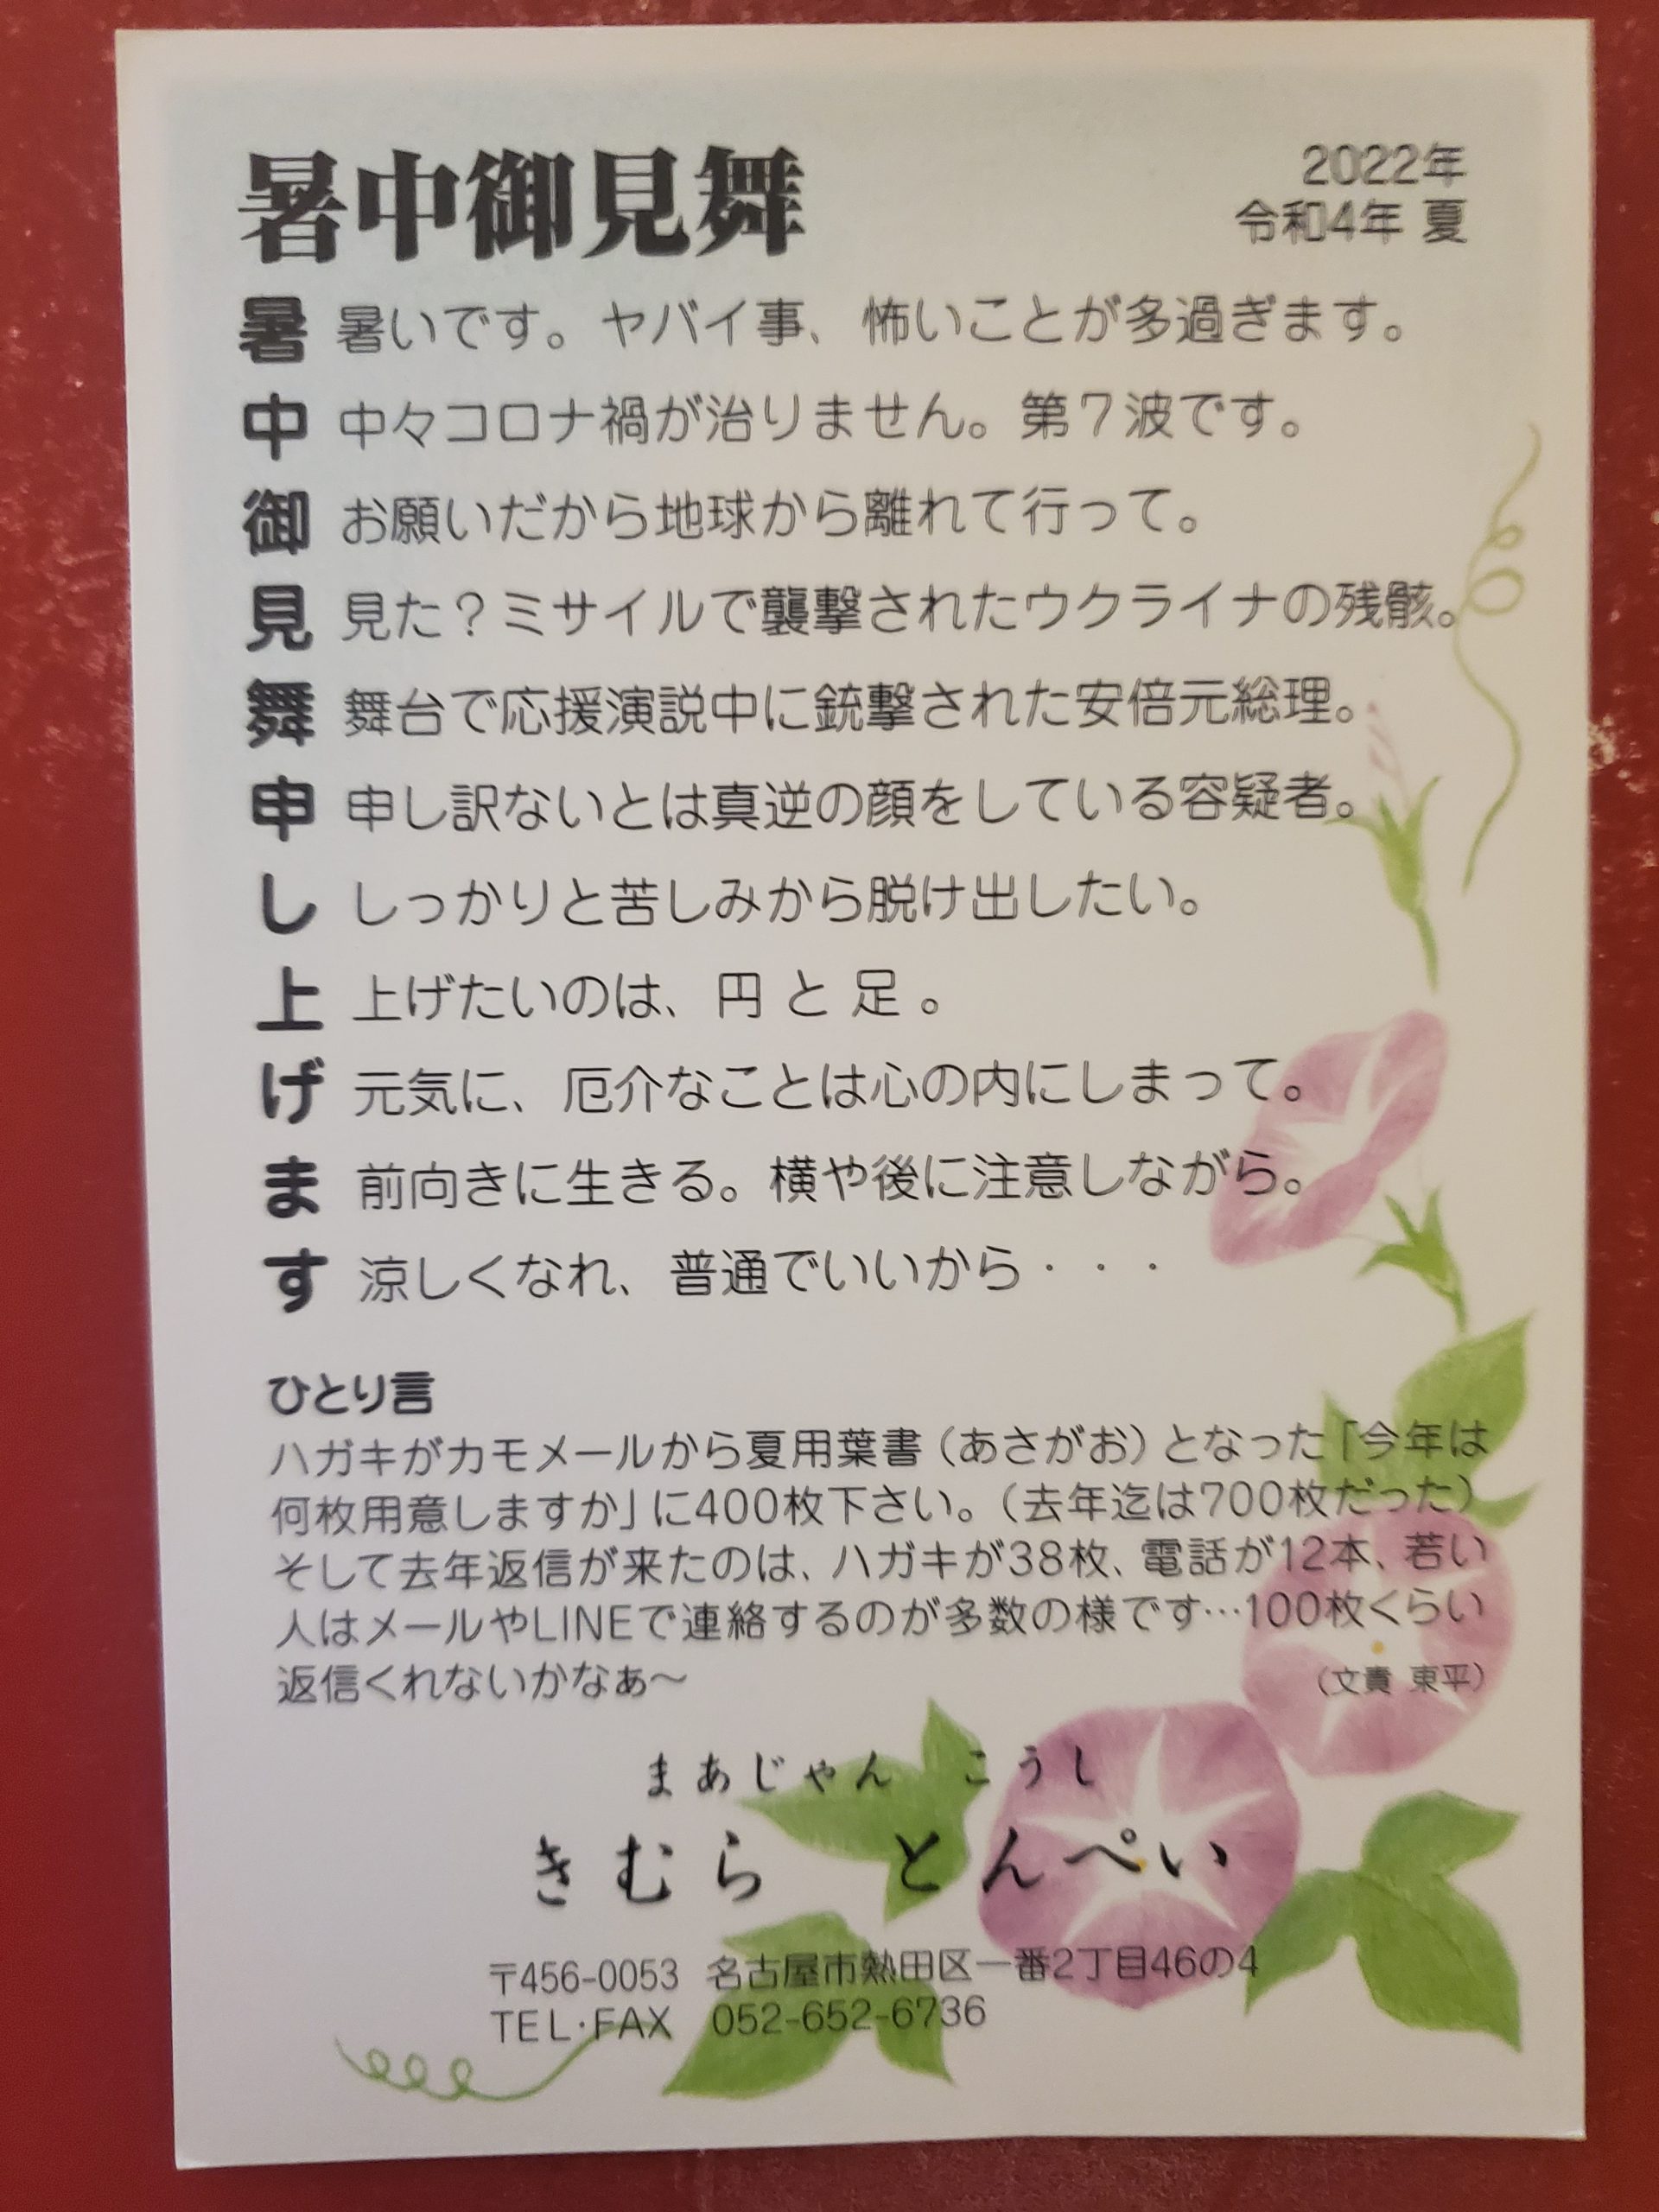 暑中御見舞
2022年
令和4年 夏
暑 暑いです。ヤバイ事、怖いことが多過ぎます。
中 中々コロナ禍が治りません。第7波です。
御 お願いだから地球から離れて行って。
見 見た？ミサイルで襲撃されたウクライナの残骸。
舞 舞台で応援演説中に銃撃された安倍元総理。
申 申し訳ないとは真逆の顔をしている容疑者。
し しっかりと苦しみから脱け出したい。
上 上げたいのは、円 と 足 。
げ 元気に、厄介なことは心の内にしまって。
ま 前向きに生きる。横や後に注意しながら。
す 涼しくなれ、普通でいいから・・・
ひとり言
ハガキがカモメールから夏用葉書（あさがお）となった「今年は
何枚用意しますか」に400枚下さい。（去年迄は700枚だった）
そして去年返信が来たのは、ハガキが38枚、電話が12本、若い
人はメールやLINEで連絡するのが多数の様です…100枚くらい
返信くれないかなぁ〜
（文責 東平）
まあじゃん こうし
きむら とんぺい
〒456-0053 名古屋市熱田区一番2丁目46の4
TEL・FAX 052-652-6736